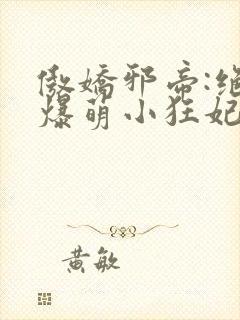 傲嬌邪帝:絕
爆萌小狂妃
黄敏